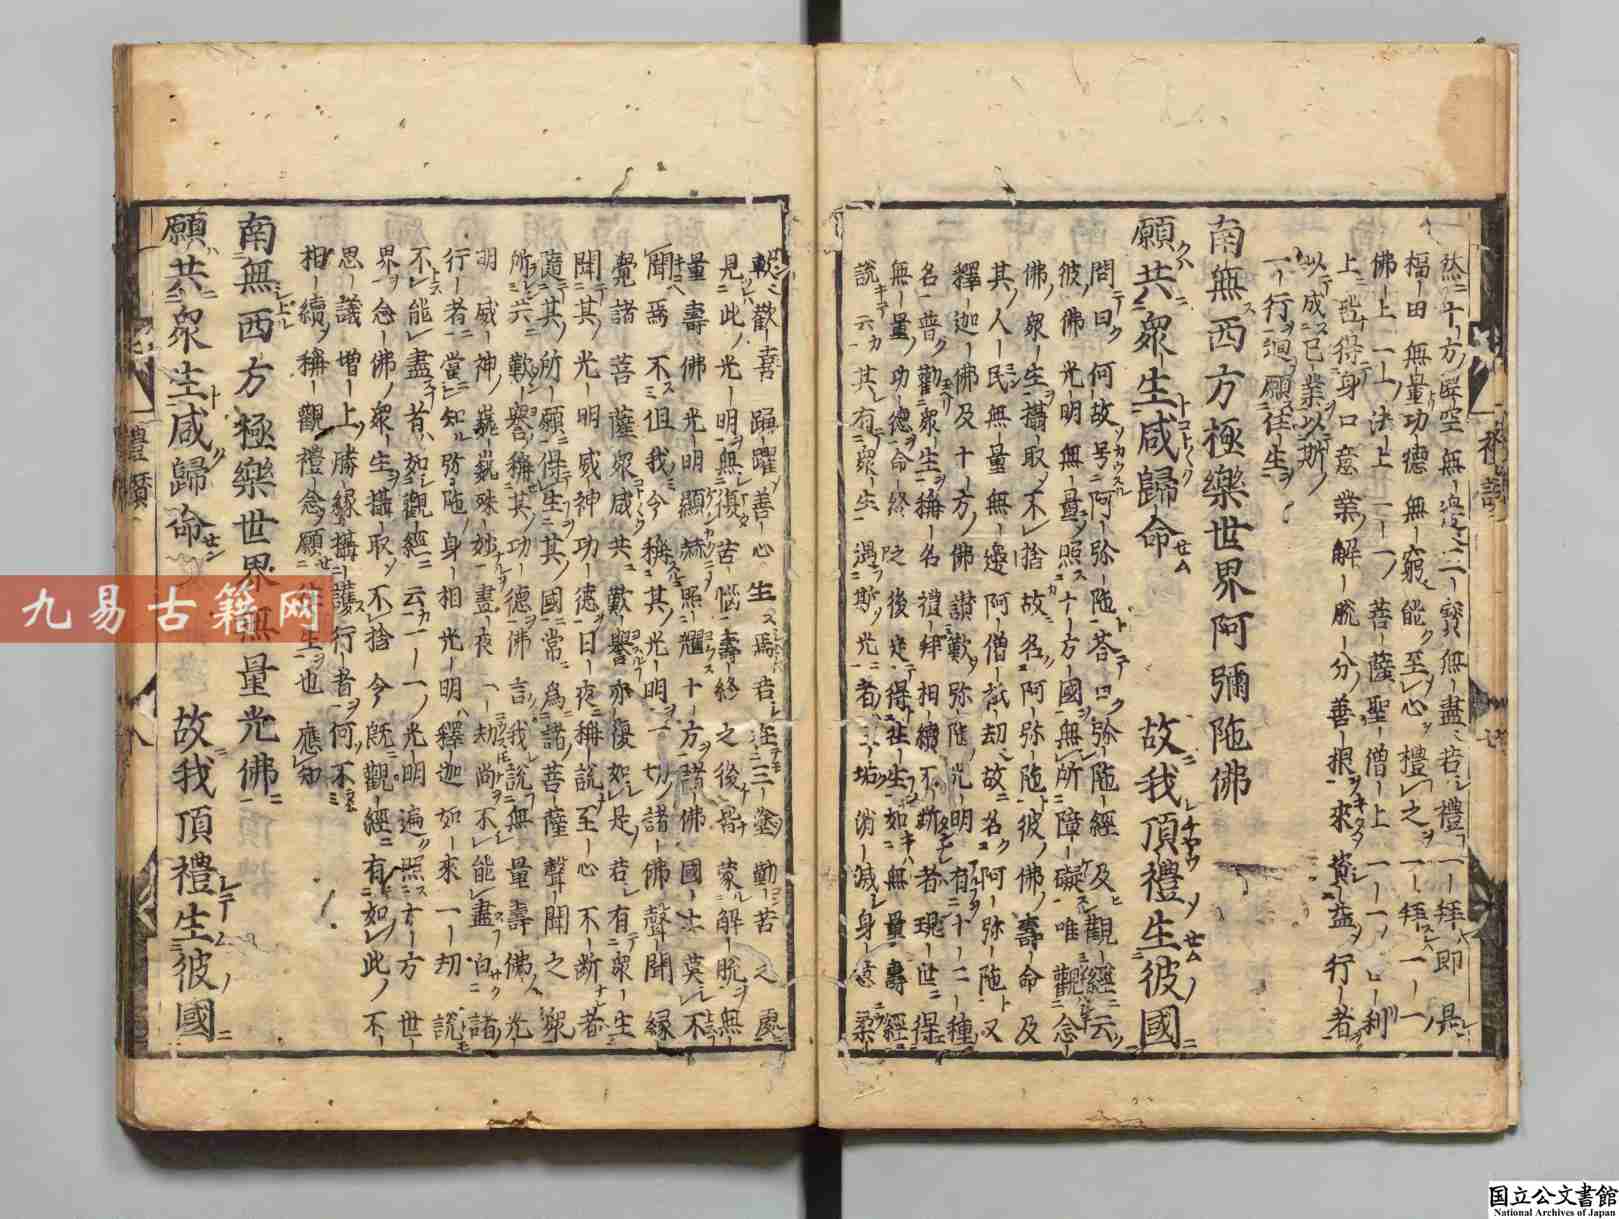 然十方虛空無邊三寶無盡若禮一拜即是
福田無量功德無窮能至心禮之一一拜一一
佛上一一法上一一菩薩聖僧上一一舍利
上皆得身口意業解脫分善根來資益行者
以成已業以斯
一行迴願往生
南無西方極樂世界阿彌陁佛
願共衆生咸歸命 故我頂禮生彼國
問曰何故号阿弥陁荅曰弥陁經及觀經云
彼佛光明無量照十方國無所障礙唯觀念
佛衆生攝取不捨故名阿弥陁彼佛壽命及
其人民無量無邊阿僧祇劫故名阿弥陁又
釋迦佛及十方佛讃歎弥陁光明有十二種
名普勸衆生稱名禮拜相續不斷者現世得
無量功德命終之後定得往生如無量壽經
說云其有衆生遇斯光者三垢消滅身意柔
軟歡喜踊躍善心生焉若在三塗勤苦之處
見此光明無復苦惱壽終之後皆蒙解脫無
量壽佛光明顯赫照耀十方諸佛國土莫不
聞焉不但我今稱其光明一切諸佛聲聞緣
覺諸菩薩衆咸共歎譽亦復如是若有衆生
聞其光明威神功德日夜稱說至心不斷者
隨其所願得生其國常爲諸菩薩聲聞之衆
所共歎譽稱其功德佛言我說無量壽佛光
明威神巍巍殊妙晝夜一劫尚不能盡白諸
行者當知弥陁身相光明釋迦如來一劫說
不能盡者如觀經云一一光明遍照十方世
界念佛衆生攝取不捨今既觀經有如此不
思議增上勝緣攝護行者何不
相續稱觀禮念願往生也應知
南無西方極樂世界無量光佛
願共衆生咸歸命 故我頂禮生彼國
禮讃
九易古籍网
国立公文書館
National Archives of Japan